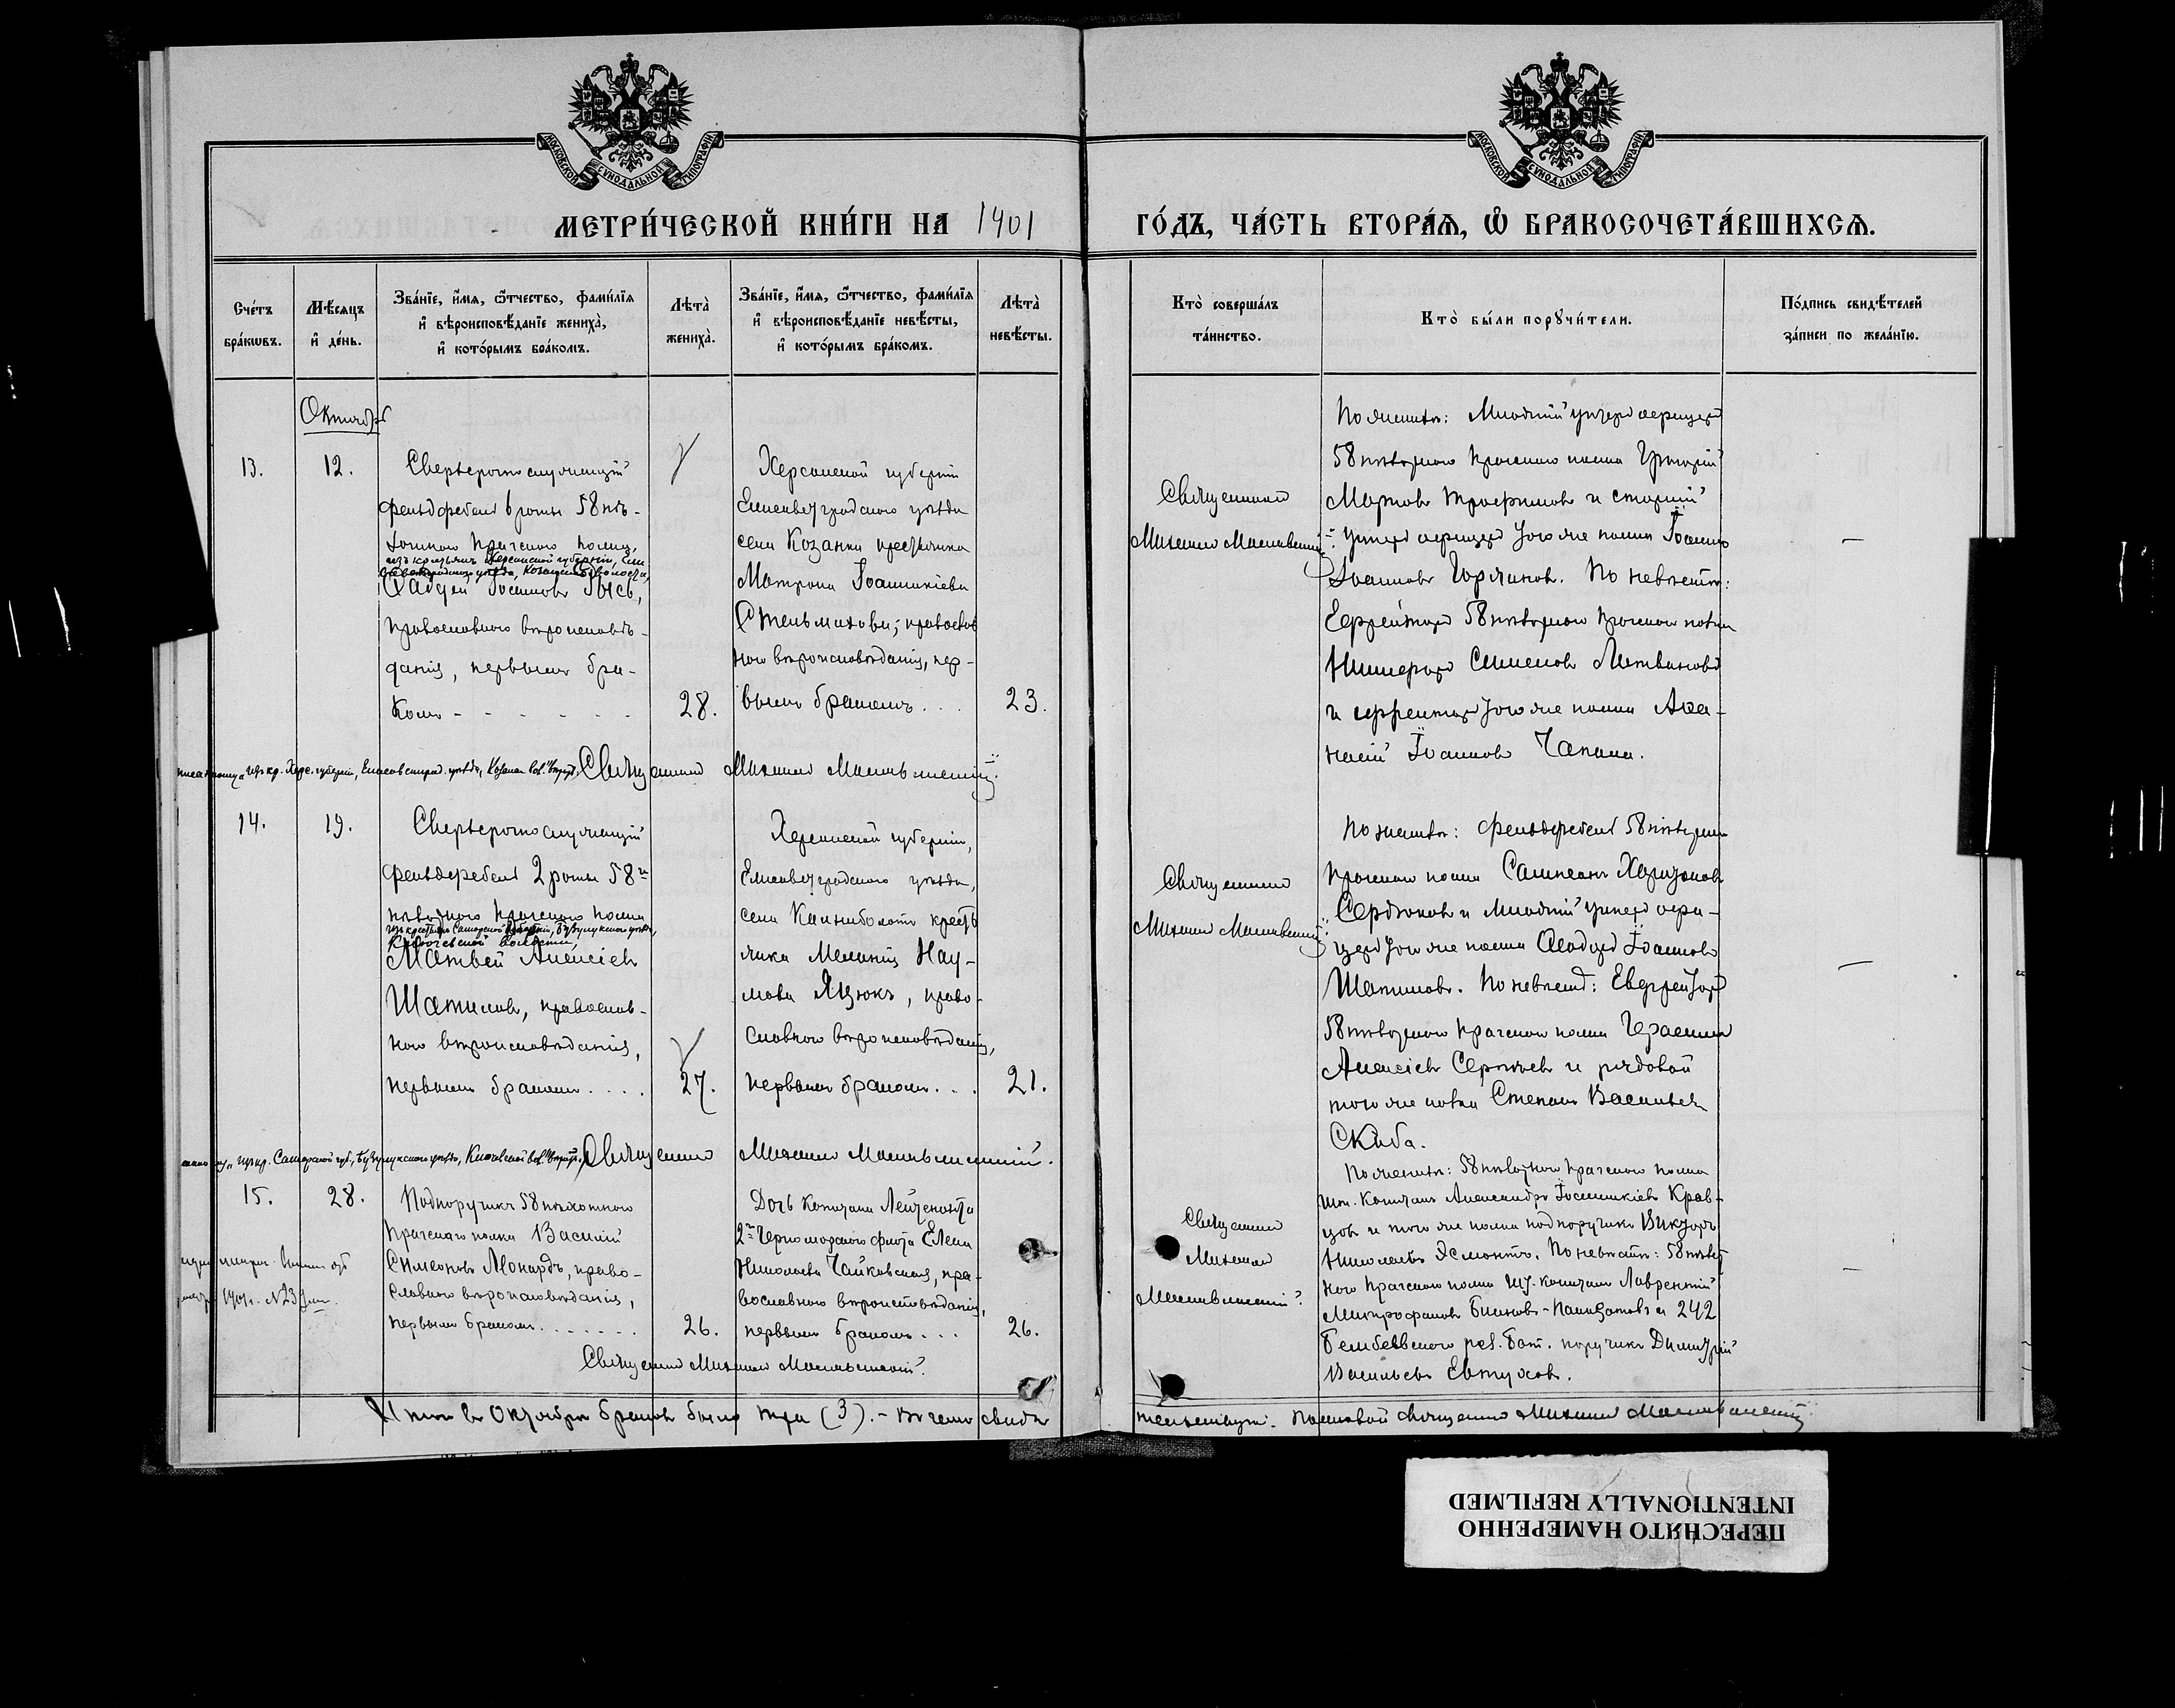 МОСКОВСКОЙ СУНОДАЛЬНОЙ ТИПОГРАФІИ
МОСКОВСКОЙ СУНОДАЛЬНОЙ ТИПОГРАФІИ
МЕТРИ́ЧЕСКОЙ КНИ́ГИ НА 1901 ГО́ДЪ, ЧА́СТЬ ВТОРА́Ѧ, Ѽ БРАКОСОЧЕТА́ВШИХСѦ.
Сче́тъ бра́кѡвъ.
Мѣ́сѧцъ и҆ де́нь.
Зва́нїе, и҆́мѧ, ѻ҆́тчество, фами́лїѧ
и҆ вѣроисповѣ́данїе жениха̀,
и҆ кото́рымъ бра́комъ.
Лѣта̀ жениха̀.
Зва́нїе, и҆́мѧ, ѻ҆́тчество, фами́лїѧ
и҆ вѣроисповѣ́данїе невѣ́сты,
и҆ кото́рымъ бра́комъ.
Лѣта̀ невѣ́сты.
Кто̀ соверша́лъ та́инство.
Кто̀ бы́ли порꙋчи́тели.
По́дпись свидѣ́телей за́писи по жела́нїю.
Октябрь
13.
12.
Сверхсрочнослужащій
фельдфебель 6 роты 58 пѣ-
хотнаго Прагскаго полка,
изъ крестьянъ Херсонской губерніи, Ели
саветградскаго уѣзда, Козанской волости,
Іоанновъ
православнаго вѣроисповѣ-
данія, первымъ бра-
комъ - - - - - -
28.
Херсонской губерніи
Елисаветградскаго уѣзда
села Козанки крестьянка
Матрона Іоанникіева
Стельмахова, православ
наго вѣроисповѣданія, пер-
вымъ бракомъ . . .
23.
Священникъ
Михаилъ
По женихѣ: Младшій унтеръ офицеръ
58 пѣхотнаго Прагскаго полка Григорій
Марковъ Трофимовъ и старшій
унтеръ офицеръ того же полка Іоаннъ
Іоанновъ По невѣстѣ:
Ефрейторъ 58 пѣхотнаго Прагскаго полка
Никифоръ Симеоновъ Литвиновъ
и ефрейторъ того же полка Аѳа-
насій Іоанновъ Чапала.
—
Священникъ Михаилъ
14.
19.
Сверхсрочнослужащій
фельдфебель 2 роты 58го
пѣхотнаго Прагскаго полка
изъ крестьянъ Самарской губерніи, Бузулукскаго уѣзда,
волости,
Матвей Алексіевъ
Шатиловъ, православ-
наго вѣроисповѣданія,
первымъ бракомъ . . . .
27.
Херсонской губерніи,
Елисаветградскаго уѣзда,
села Камниболота крестья
янка Меланія Нау-
мова Яцюкъ, право-
славнаго вѣроисповѣданія,
первымъ бракомъ . . .
21.
Священникъ
Михаилъ
По женихѣ: фельдфебель 58 пѣхотнаго
Прагскаго полка Харитоновъ
Сердюковъ и Младшій унтеръ офи-
церъ того же полка Ѳеодоръ Іоанновъ
Шатиловъ. По невѣстѣ: Ефрейторъ
58 пѣхотнаго Прагскаго полка Герасимъ
Алексіевъ Сергѣевъ и рядовой
того же полка Степанъ Васильевъ
Скиба.
—
Священникъ Михаилъ
15.
28.
Подпоручикъ 58 пѣхотнаго
Прагскаго полка Василій
Симеоновъ Леонардъ, право-
славнаго вѣроисповѣданія,
первымъ бракомъ . . . . . . .
26.
Дочь капитана Лейтенанта
2го Черноморскаго флота Елена
Николаева Чайковская, пра-
вославнаго вѣроисповѣданія,
первымъ бракомъ . . .
26.
Священникъ
Михаилъ
По женихѣ: 58 пѣхотнаго Прагскаго полка
шт. Капитанъ Александръ Іоанникіевъ Крав-
цовъ и того же полка подпоручикъ Викторъ
Николаевъ Эсмонтъ. По невѣстѣ: 58 пѣхот
наго Прагскаго полка шт. капитанъ Лаврентій
Митрофановъ и 242
Белебеевскаго рез. бат. поручикъ Димитрій
Васильевъ Евтуховъ.
—
Священникъ Михаилъ
1901г. № 23
Итого въ Октябрѣ браковъ было три (3). - Въ чемъ свидѣ
тельствуетъ: Полковой священникъ Михаилъ
ПЕРЕСНЯТО НАМЕРЕННО
INTENTIONALLY REFILMED